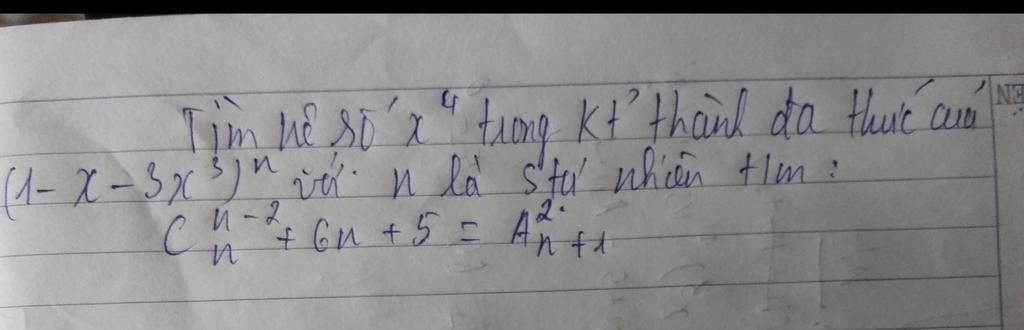 Tìm hệ số x⁴ trong kt' thành đa thức của
(1 - x - 3x³)ⁿ với n là stự nhiên t/m :
Cₙⁿ⁻² + 6n + 5 = A²ₙ₊₁